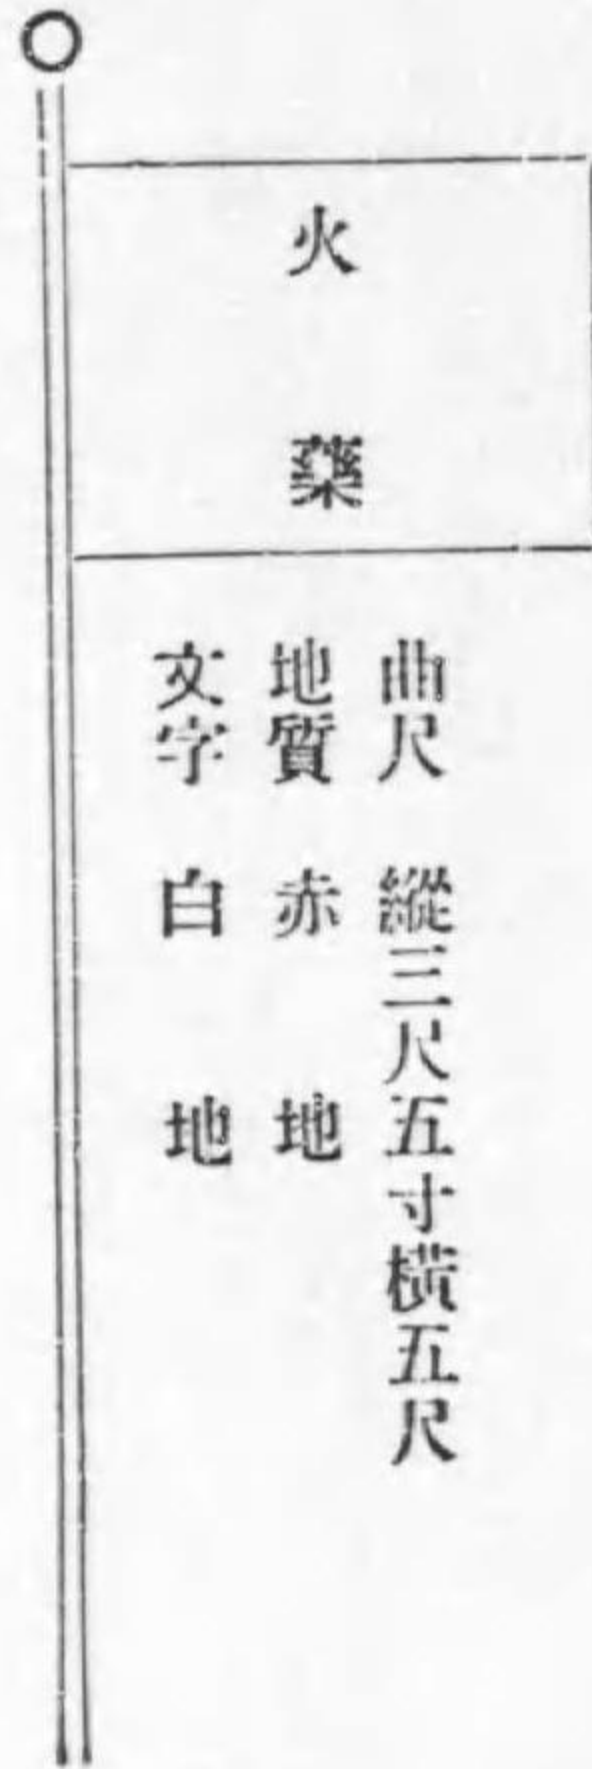 火藥
曲尺 縱三尺五寸橫五尺
地質 赤地
文字 白地